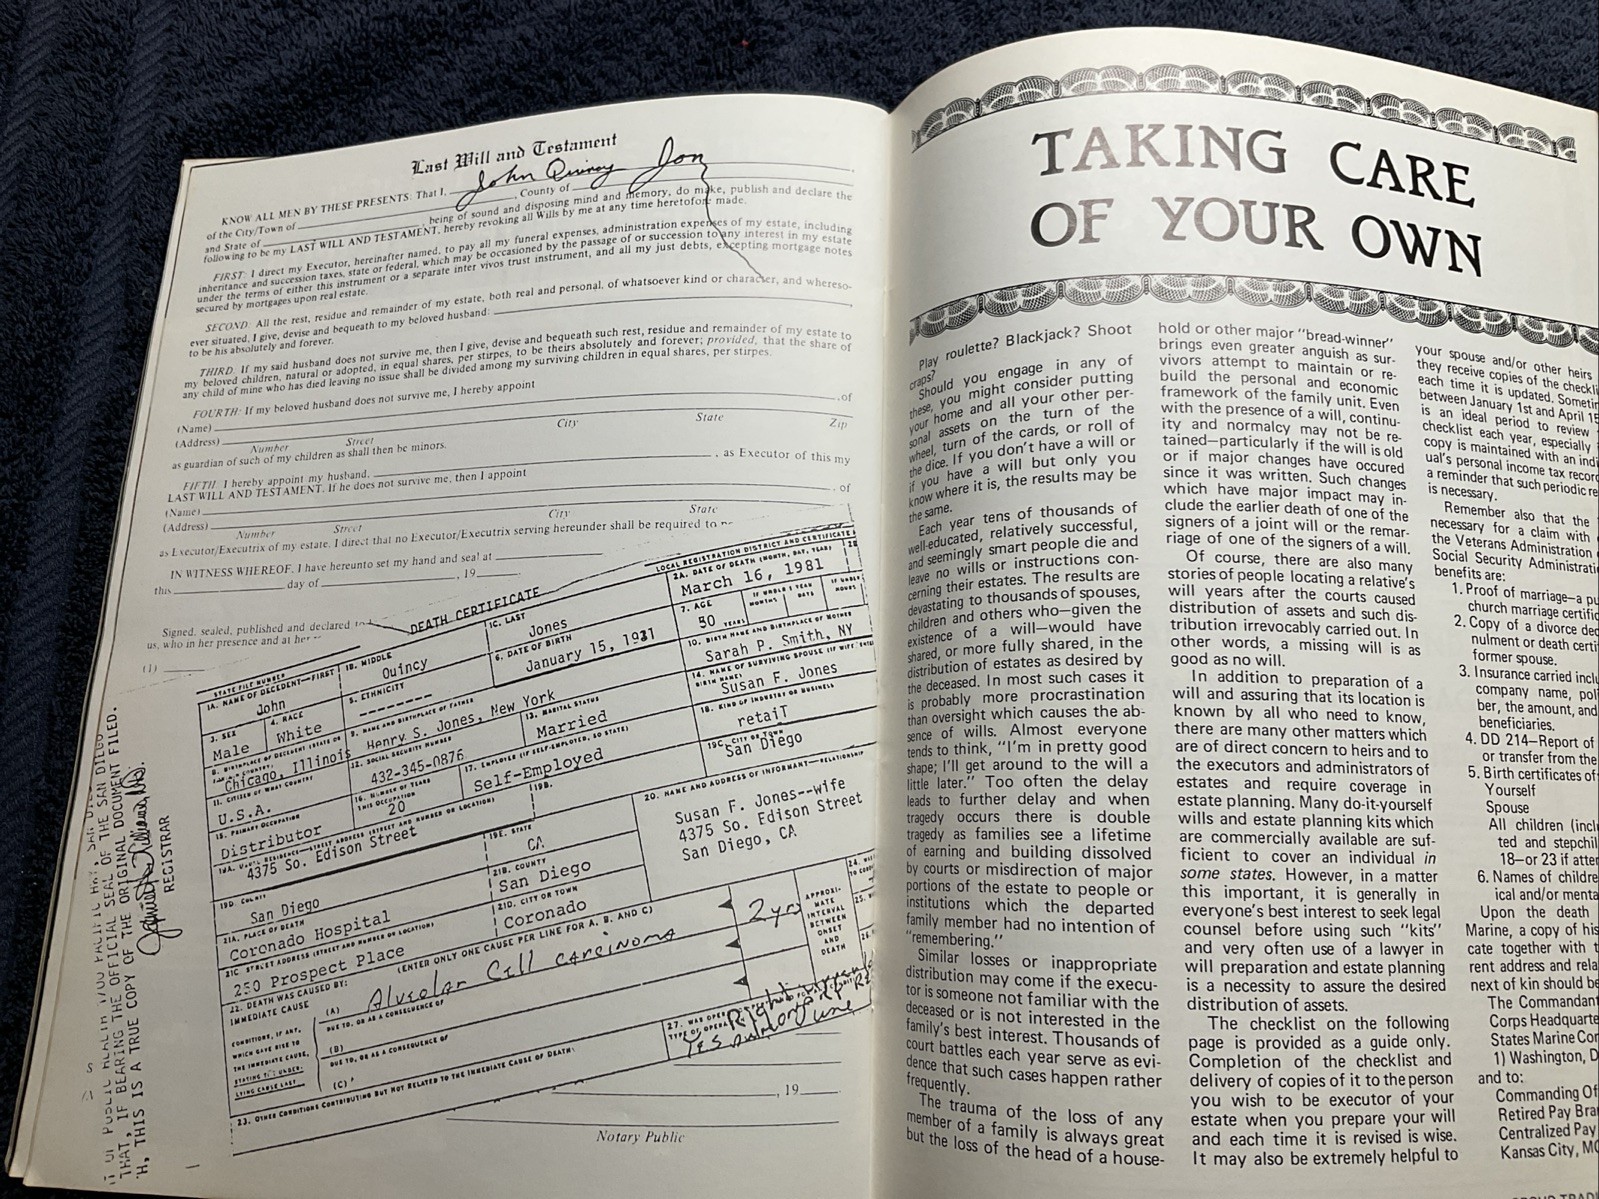 Last Will and Testament
KNOW ALL MEN BY THESE PRESENTS: That I, John Quincy Jon
of the City/Town of , County of
and State of being of sound and disposing mind and memory, do make, publish and declare the
following to be my LAST WILL AND TESTAMENT, hereby revoking all Wills by me at any time heretofore made.
FIRST: I direct my Executor, hereinafter named, to pay all my funeral expenses, administration expenses of my estate, including
inheritance and succession taxes, state or federal, which may be occasioned by the passage of or succession to any interest in my estate
under the terms of either this instrument or a separate inter vivos trust instrument, and all my just debts, excepting mortgage notes
secured by mortgages upon real estate.
SECOND: All the rest, residue and remainder of my estate, both real and personal, of whatsoever kind or character, and whereso-
ever situated, I give, devise and bequeath to my beloved husband:
to be his absolutely and forever.
THIRD: If my said husband does not survive me, then I give, devise and bequeath such rest, residue and remainder of my estate to
my beloved children, natural or adopted, in equal shares, per stirpes, to be theirs absolutely and forever; provided, that the share of
any child of mine who has died leaving no issue shall be divided among my surviving children in equal shares, per stirpes.
FOURTH: If my beloved husband does not survive me, I hereby appoint
(Name) , of
(Address)
Number Street City State Zip
as guardian of such of my children as shall then be minors.
FIFTH: I hereby appoint my husband, , as Executor of this my
LAST WILL AND TESTAMENT. If he does not survive me, then I appoint
(Name) , of
(Address)
Number Street City State
as Executor/Executrix of my estate. I direct that no Executor/Executrix serving hereunder shall be required to
IN WITNESS WHEREOF, I have hereunto set my hand and seal at
this day of , 19
Signed, sealed, published and declared to
us, who in her presence and at her
(1)
DEATH CERTIFICATE
STATE FILE NUMBER
LOCAL REGISTRATION DISTRICT AND CERTIFICATE
1A. NAME OF DECEDENT—FIRST 1B. MIDDLE 1C. LAST 2A. DATE OF DEATH (MONTH, DAY, YEAR)
John Quincy Jones March 16, 1981
3. SEX 4. RACE 5. ETHNICITY 6. DATE OF BIRTH 7. AGE
Male White January 15, 1931 50 YEARS
9. NAME AND BIRTHPLACE OF FATHER 10. BIRTH NAME AND BIRTHPLACE OF MOTHER
Chicago, Illinois Henry S. Jones, New York Sarah P. Smith, NY
11. CITIZEN OF WHAT COUNTRY 12. SOCIAL SECURITY NUMBER 13. MARITAL STATUS 14. NAME OF SURVIVING SPOUSE
U.S.A. 432-345-0876 Married Susan F. Jones
15. PRIMARY OCCUPATION 16. NUMBER OF YEARS THIS OCCUPATION 17. EMPLOYER (IF SELF-EMPLOYED, SO STATE) 18. KIND OF INDUSTRY OR BUSINESS
Distributor 20 Self-Employed retail
19B. 19C. CITY OR TOWN
4375 So. Edison Street San Diego
19D. COUNTY 19E. STATE 20. NAME AND ADDRESS OF INFORMANT—RELATIONSHIP
San Diego CA Susan F. Jones--wife
4375 So. Edison Street
San Diego, CA
21A. PLACE OF DEATH 21B. COUNTY
Coronado Hospital San Diego
21C. STREET ADDRESS (STREET AND NUMBER OR LOCATION) 21D. CITY OR TOWN
250 Prospect Place Coronado
22. DEATH WAS CAUSED BY: (ENTER ONLY ONE CAUSE PER LINE FOR A, B, AND C)
IMMEDIATE CAUSE
(A) Alveolar Cell Carcinoma 2 yrs
DUE TO, OR AS A CONSEQUENCE OF
(B)
DUE TO, OR AS A CONSEQUENCE OF
(C)
CONDITIONS, IF ANY,
WHICH GAVE RISE TO
THE IMMEDIATE CAUSE,
APPROXI-
MATE
INTERVAL
BETWEEN
ONSET
AND
DEATH
23. OTHER CONDITIONS CONTRIBUTING BUT NOT RELATED TO THE IMMEDIATE CAUSE OF DEATH:
, 19
Notary Public
THAT, IF BEARING THE OFFICIAL SEAL OF THE SAN DIEGO
H, THIS IS A TRUE COPY OF THE ORIGINAL DOCUMENT FILED.
REGISTRAR
TAKING CARE
OF YOUR OWN
Play roulette? Blackjack? Shoot
craps?
Should you engage in any of
these, you might consider putting
your home and all your other per-
sonal assets on the turn of the
wheel, turn of the cards, or roll of
the dice. If you don't have a will or
if you have a will but only you
know where it is, the results may be
the same.
Each year tens of thousands of
well-educated, relatively successful,
and seemingly smart people die and
leave no wills or instructions con-
cerning their estates. The results are
devastating to thousands of spouses,
children and others who—given the
existence of a will—would have
shared, or more fully shared, in the
distribution of estates as desired by
the deceased. In most such cases it
is probably more procrastination
than oversight which causes the ab-
sence of wills. Almost everyone
tends to think, "I'm in pretty good
shape; I'll get around to the will a
little later." Too often the delay
leads to further delay and when
tragedy occurs there is double
tragedy as families see a lifetime
of earning and building dissolved
by courts or misdirection of major
portions of the estate to people or
institutions which the departed
family member had no intention of
"remembering."
Similar losses or inappropriate
distribution may come if the execu-
tor is someone not familiar with the
deceased or is not interested in the
family's best interest. Thousands of
court battles each year serve as evi-
dence that such cases happen rather
frequently.
The trauma of the loss of any
member of a family is always great
but the loss of the head of a house-
hold or other major "bread-winner"
brings even greater anguish as sur-
vivors attempt to maintain or re-
build the personal and economic
framework of the family unit. Even
with the presence of a will, continu-
ity and normalcy may not be re-
tained—particularly if the will is old
or if major changes have occured
since it was written. Such changes
which have major impact may in-
clude the earlier death of one of the
signers of a joint will or the remar-
riage of one of the signers of a will.
Of course, there are also many
stories of people locating a relative's
will years after the courts caused
distribution of assets and such dis-
tribution irrevocably carried out. In
other words, a missing will is as
good as no will.
In addition to preparation of a
will and assuring that its location is
known by all who need to know,
there are many other matters which
are of direct concern to heirs and to
the executors and administrators of
estates and require coverage in
estate planning. Many do-it-yourself
wills and estate planning kits which
are commercially available are suf-
ficient to cover an individual in
some states. However, in a matter
this important, it is generally in
everyone's best interest to seek legal
counsel before using such "kits"
and very often use of a lawyer in
will preparation and estate planning
is a necessity to assure the desired
distribution of assets.
The checklist on the following
page is provided as a guide only.
Completion of the checklist and
delivery of copies of it to the person
you wish to be executor of your
estate when you prepare your will
and each time it is revised is wise.
It may also be extremely helpful to
your spouse and/or other heirs
they receive copies of the checkli
each time it is updated. Sometim
between January 1st and April 15
is an ideal period to review
checklist each year, especially
copy is maintained with an indi
ual's personal income tax record
a reminder that such periodic re
is necessary.
Remember also that the
necessary for a claim with
the Veterans Administration
Social Security Administrati
benefits are:
1. Proof of marriage—a pu
church marriage certific
2. Copy of a divorce dec
nulment or death certi
former spouse.
3. Insurance carried incl
company name, poli
ber, the amount, and
beneficiaries.
4. DD 214—Report of
or transfer from the
5. Birth certificates of
Yourself
Spouse
All children (incl
ted and stepchil
18—or 23 if atten
6. Names of childre
ical and/or menta
Upon the death
Marine, a copy of his
cate together with t
rent address and rela
next of kin should be
The Commandant
Corps Headquarte
States Marine Cor
1) Washington, D
and to:
Commanding Of
Retired Pay Bra
Centralized Pay
Kansas City, MO